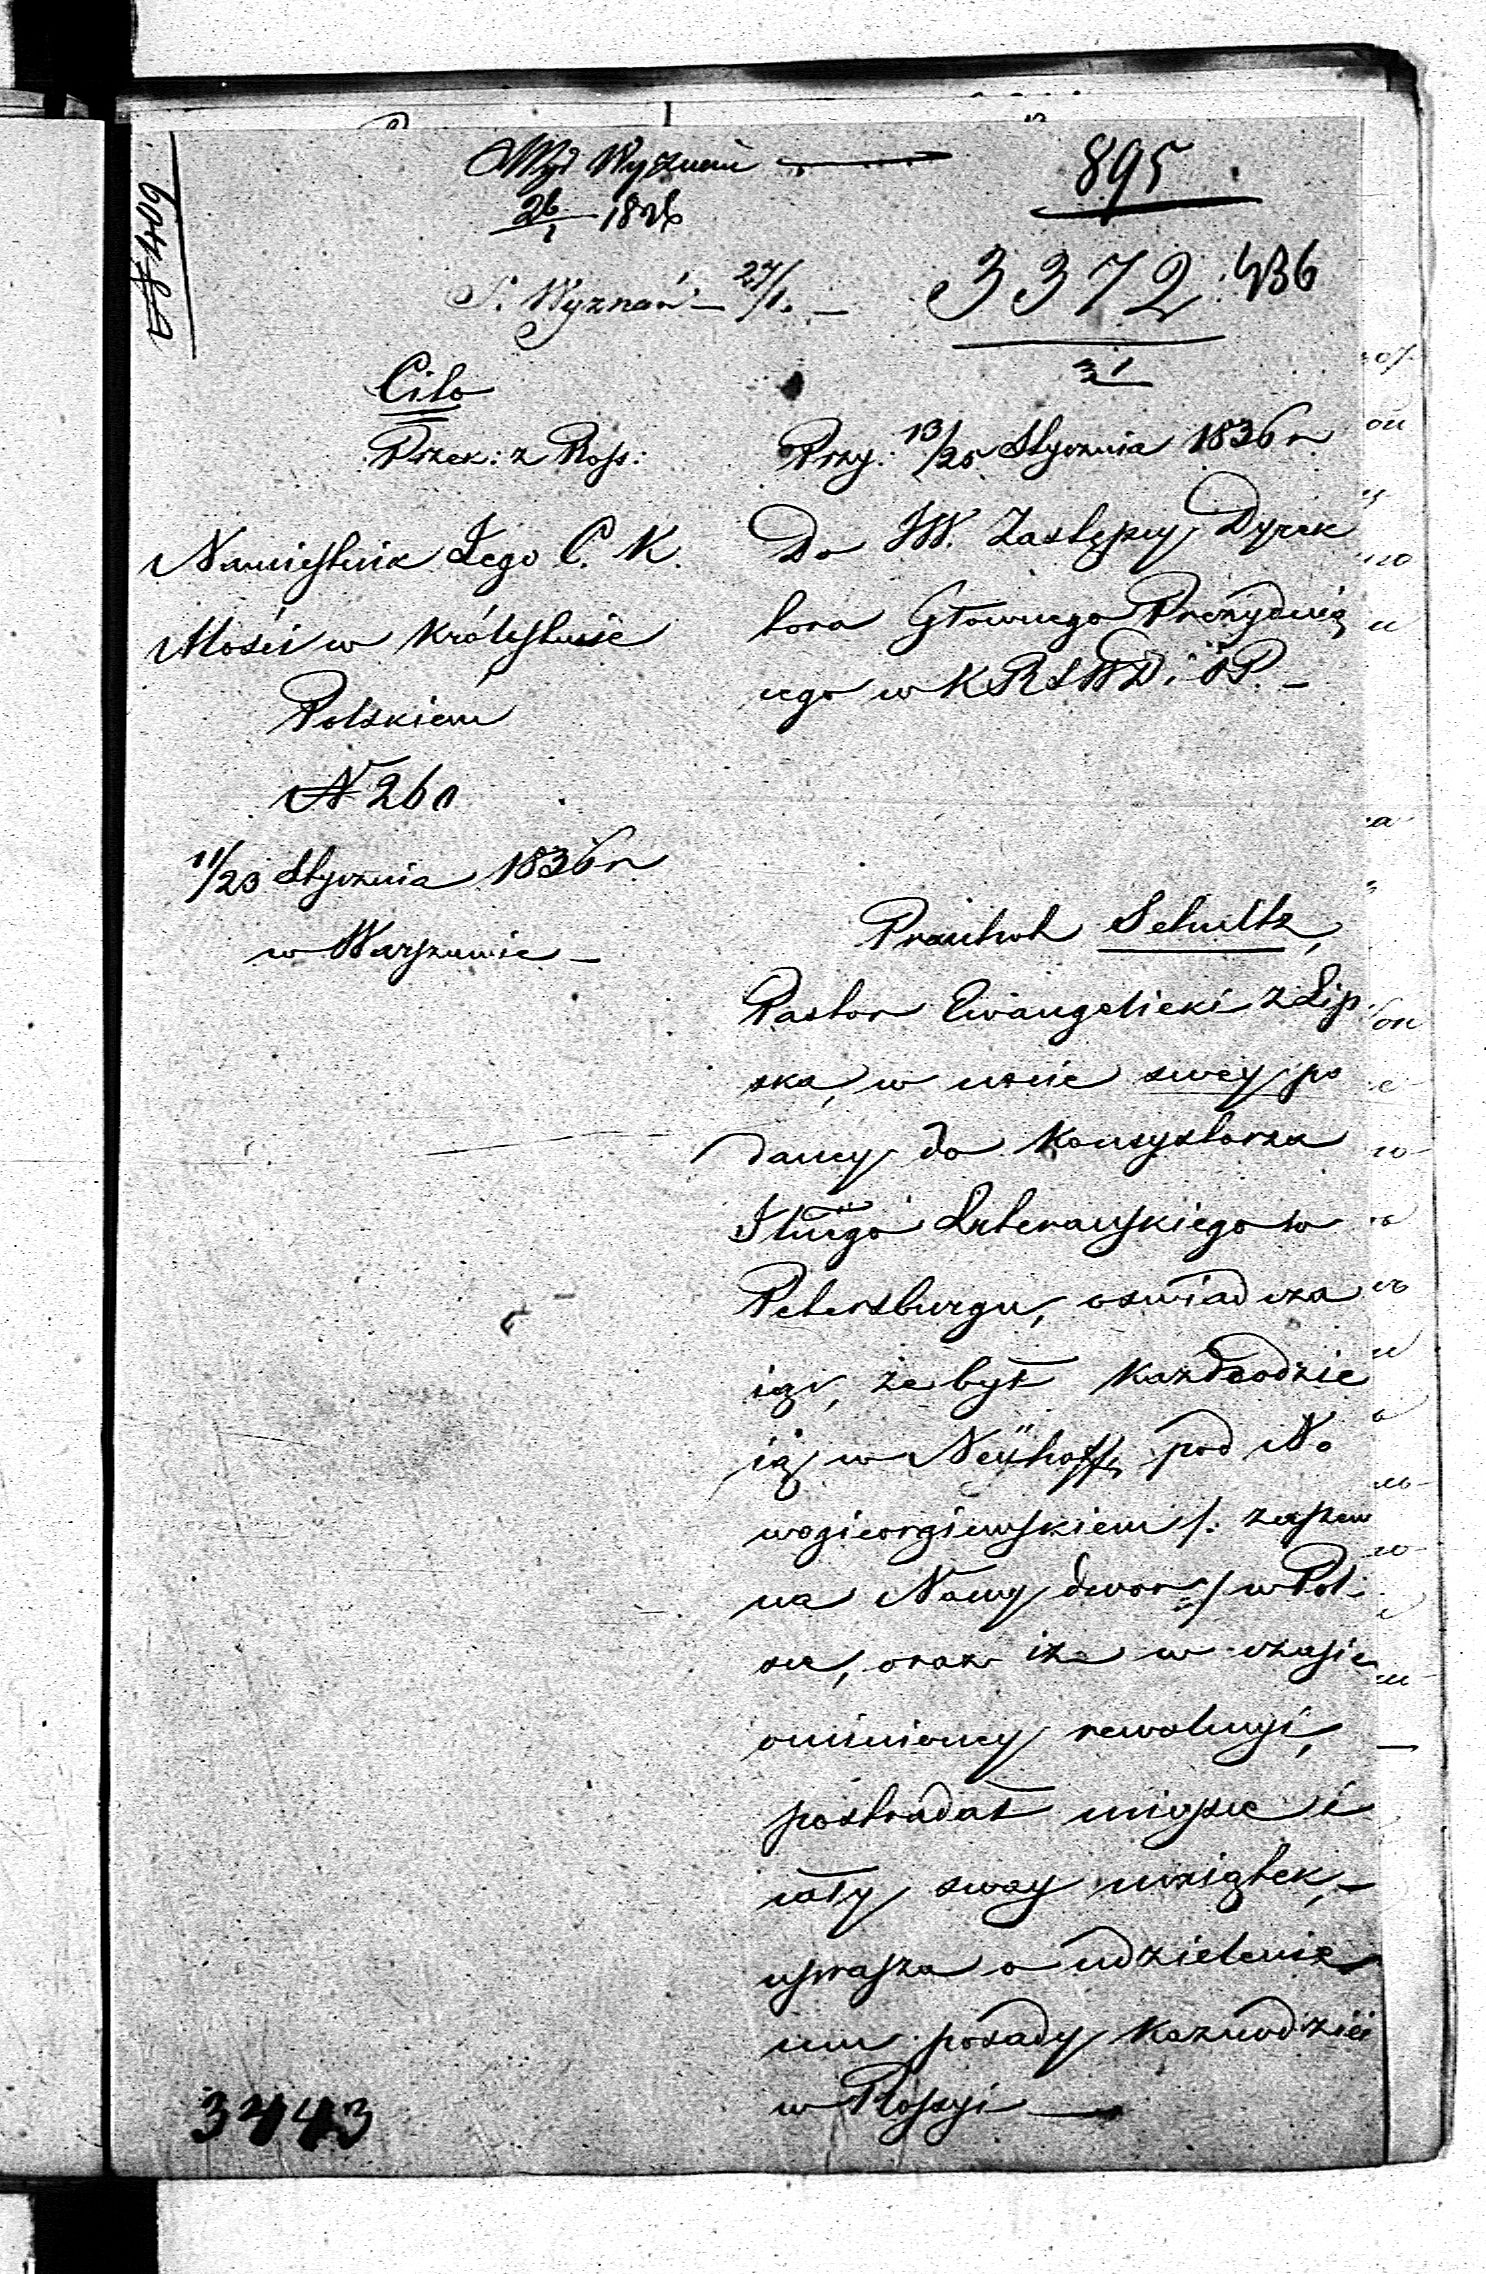 895
Wyd Wyznań
26/1 1836
3372 / 436
S. Wyznań – 27/1. –
31
№ 409
Cito
Przek: z Ross:
Namiestnik Jego C. K.
Mości w Królestwie
Polskiem
N 261
11/23 Stycznia 1836 r
w Warszawie –
Prz: 13/25 Stycznia 1836 r
Do JW. Zastępcy Dyrek
tora Głównego Prezyduią
cego w K R S W D i O P. –
Schultz,
Pastor Ewangelicki z Lip
ska, w nocie swey po
daney do Konsystorza
Luterańskiego w
Petersburgu, oswiadcza
iąc, że był Kaznodzie
ią w Neuhoff, pod No
wogieorgiewskiem /: zapew
na Nowy dwor :/ w Pol
sce, oraz iże w czasie
ominioney rewolucyi,
postradał mieysce i
cały swoy maiątek, –
uprasza o udzielenie
mu posady Kaznodziei
w Rossyi —
3443